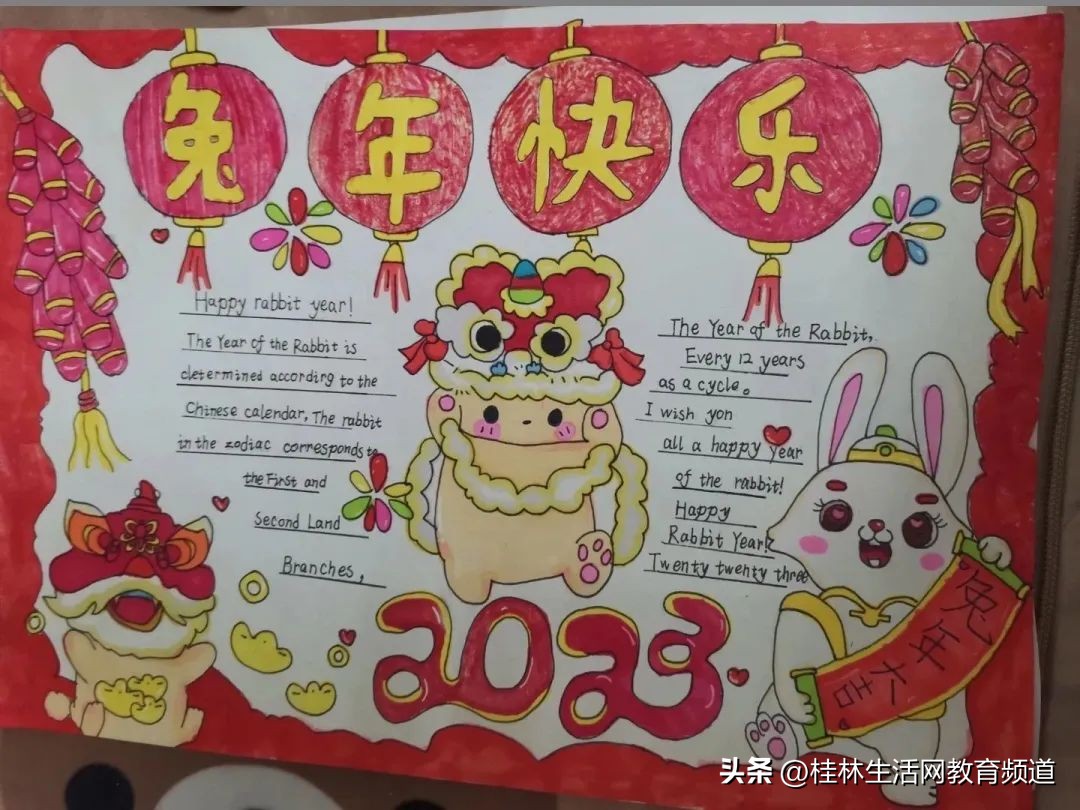 兔年快乐
Happy rabbit year!
The Year of the Rabbit is
cletermined according to the
Chinese calendar, The rabbit
in the zodiac corresponds to
the First and
Second Land
Branches,
The Year of the Rabbit,
Every 12 years
as a cycle。
I wish yon
all a happy year
of the rabbit!
Happy
Rabbit Year!
Twenty twenty three
2023
兔年大吉
头条 @桂林生活网教育频道